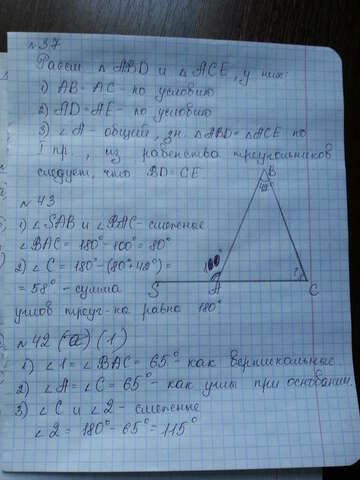 №37
Рассм △ ABD и △ ACE, у них:
1) AB = AC - по условию
2) AD = AE - по условию
3) ∠A - общий, зн. △ABD = △ACE по
I пр., из равенства треугольников
следует, что BD = CE
№43
1) ∠SAB и ∠BAC - смежные
∠BAC = 180° - 100° = 80°
2) ∠C = 180° - (80° + 42°) =
= 58° - сумма
углов треуг-ка равна 180°
B
42°
100°
?
S
A
C
№42 (1)
1) ∠1 = ∠BAC = 65° - как вертикальные
2) ∠A = ∠C = 65° - как углы при основании
3) ∠C и ∠2 - смежные
∠2 = 180° - 65° = 115°